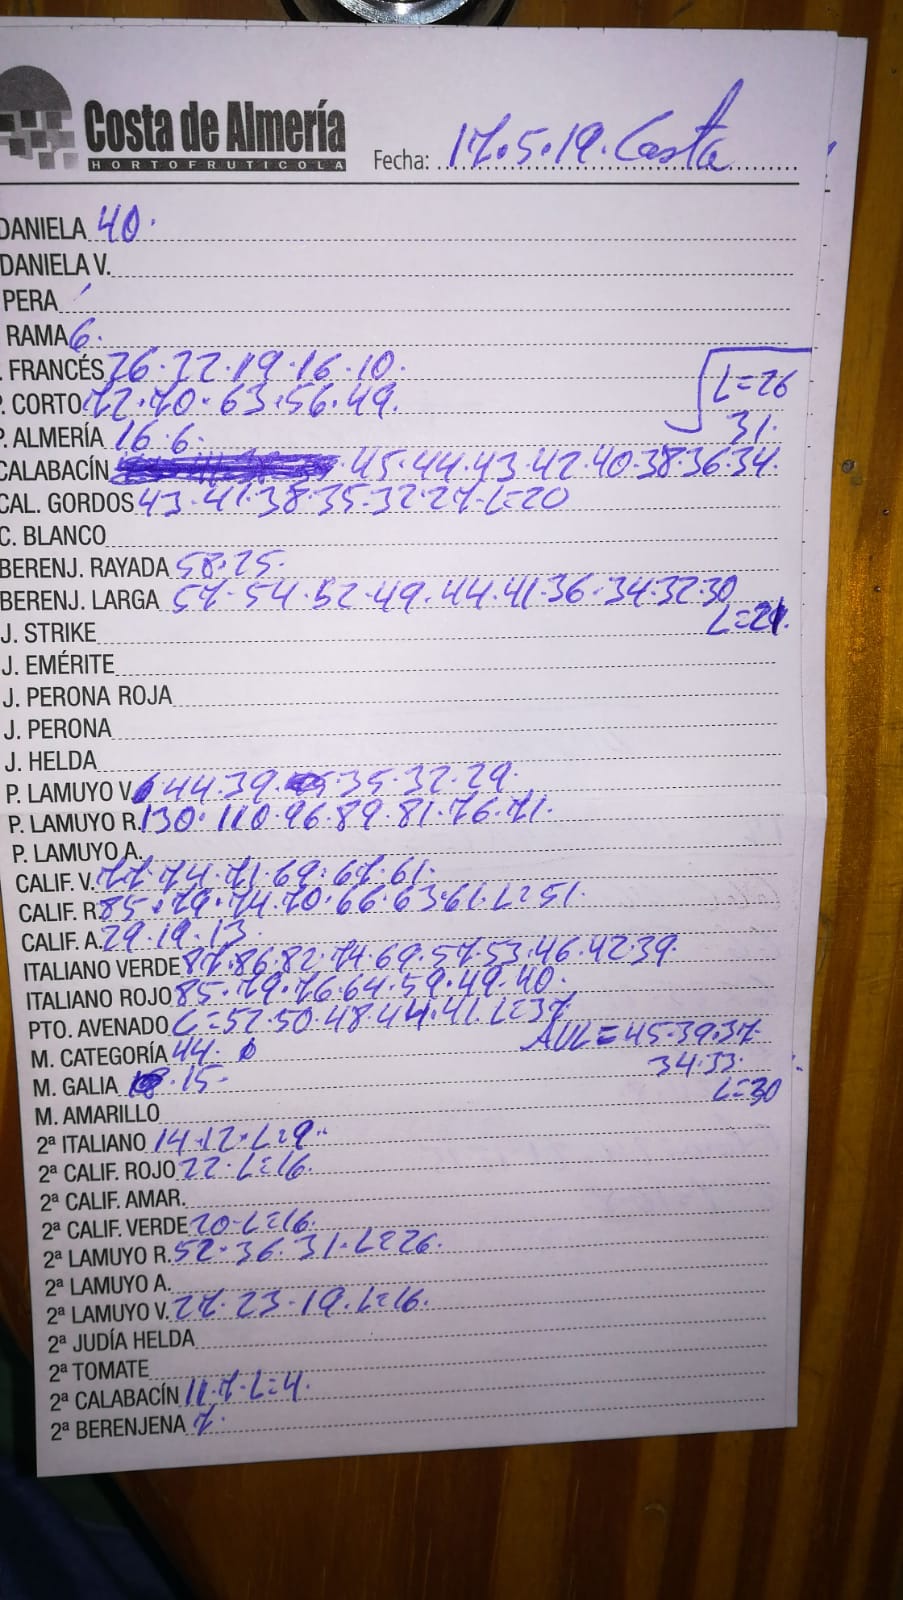 Costa de Almería
HORTOFRUTICOLA
Fecha: 17.5.19. Costa
DANIELA 40.
DANIELA V.
PERA
RAMA 6.
FRANCÉS 26.22.19.16.10.
P. CORTO 72.70.63.56.49.
L=26
P. ALMERÍA 16.6.
31.
CALABACÍN 45.44.43.42.40.38.36.34.
CAL. GORDOS 43.41.38.35.32.27.L=20
C. BLANCO
BERENJ. RAYADA 58.25.
BERENJ. LARGA 57.54.52.49.44.41.36.34.32.30
L=21.
J. STRIKE
J. EMÉRITE
J. PERONA ROJA
J. PERONA
J. HELDA
P. LAMUYO V. 44.39.35.32.29.
P. LAMUYO R. 130.110.96.89.81.76.71.
P. LAMUYO A.
CALIF. V. 77.74.71.69.67.61.
CALIF. R 85.79.74.70.66.63.61.L=51.
CALIF. A. 29.19.13.
ITALIANO VERDE 87.86.82.74.69.57.53.46.42.39.
ITALIANO ROJO 85.79.76.64.59.49.40.
PTO. AVENADO L=52.50.48.44.41.L=37
M. CATEGORÍA 44.
AVL=45.39.37.
34.33.
L=30
M. GALIA 15.
M. AMARILLO
2ª ITALIANO 14.12.L=9.
2ª CALIF. ROJO 22.L=16.
2ª CALIF. AMAR.
2ª CALIF. VERDE 20.L=16.
2ª LAMUYO R. 52.36.31.L=26.
2ª LAMUYO A.
2ª LAMUYO V. 27.23.19.L=16.
2ª JUDÍA HELDA
2ª TOMATE
2ª CALABACÍN 11.7.L=4.
2ª BERENJENA 7.